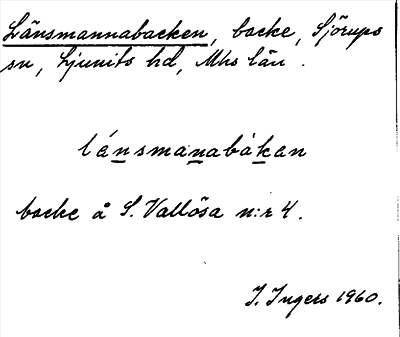 Länsmannabacken, backe, Sjörups
sn, Ljunits hd, Mhs län.
lánsmanabákan
backe å S. Vallösa n:r 4.
I. Ingers 1960.